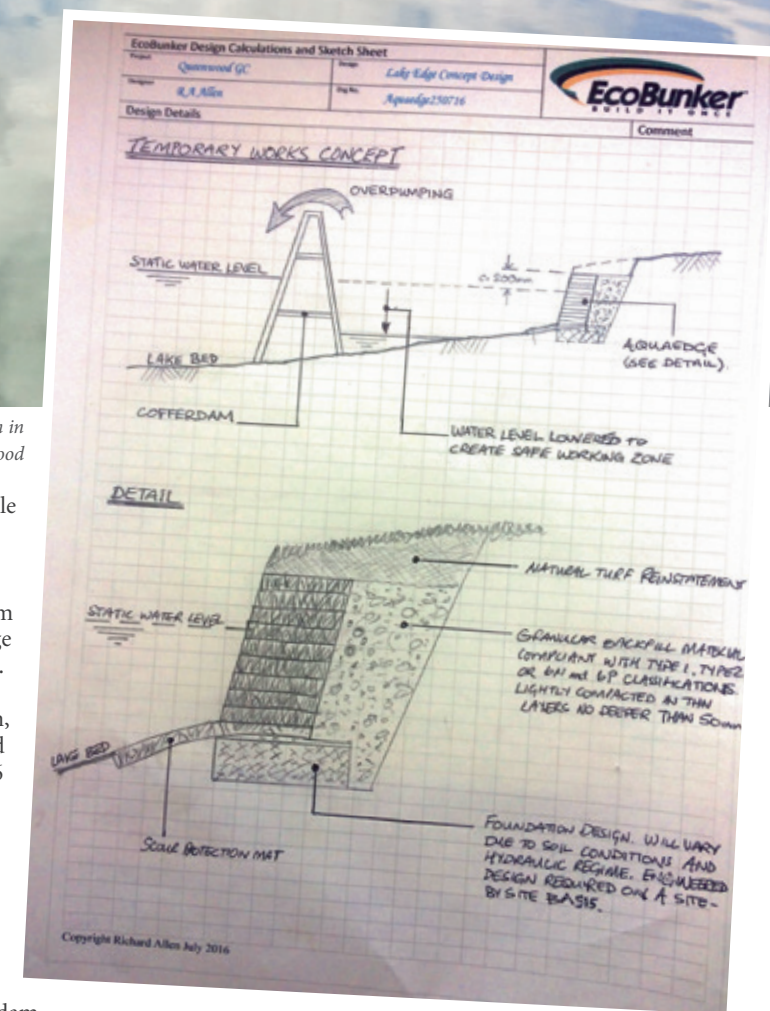 EcoBunker Design Calculations and Sketch Sheet
Project
Queenwood GC
Design
Lake Edge Concept Design
Designer
R A Allen
Dwg No.
Aquaedge250716
EcoBunker
BUILD IT ONCE
Design Details
Comment
TEMPORARY WORKS CONCEPT
OVERPUMPING
STATIC WATER LEVEL
c. 200mm
AQUAEDGE
(SEE DETAIL).
LAKE BED
COFFERDAM
WATER LEVEL LOWERED TO
CREATE SAFE WORKING ZONE
n in
ood
le
m
ge
.
n,
d
6
dam
DETAIL
NATURAL TURF REINSTATEMENT
STATIC WATER LEVEL
GRANULAR BACKFILL MATERIAL
COMPLIANT WITH TYPE 1, TYPE 2
OR 6N and 6P CLASSIFICATIONS.
LIGHTLY COMPACTED IN THIN
LAYERS NO DEEPER THAN 50mm
LAKE BED
SCOUR PROTECTION MAT
FOUNDATION DESIGN. WILL VARY
DUE TO SOIL CONDITIONS AND
HYDRAULIC REGIME. ENGINEERED
DESIGN REQUIRED ON A SITE-
BY SITE BASIS.
Copyright Richard Allen July 2016